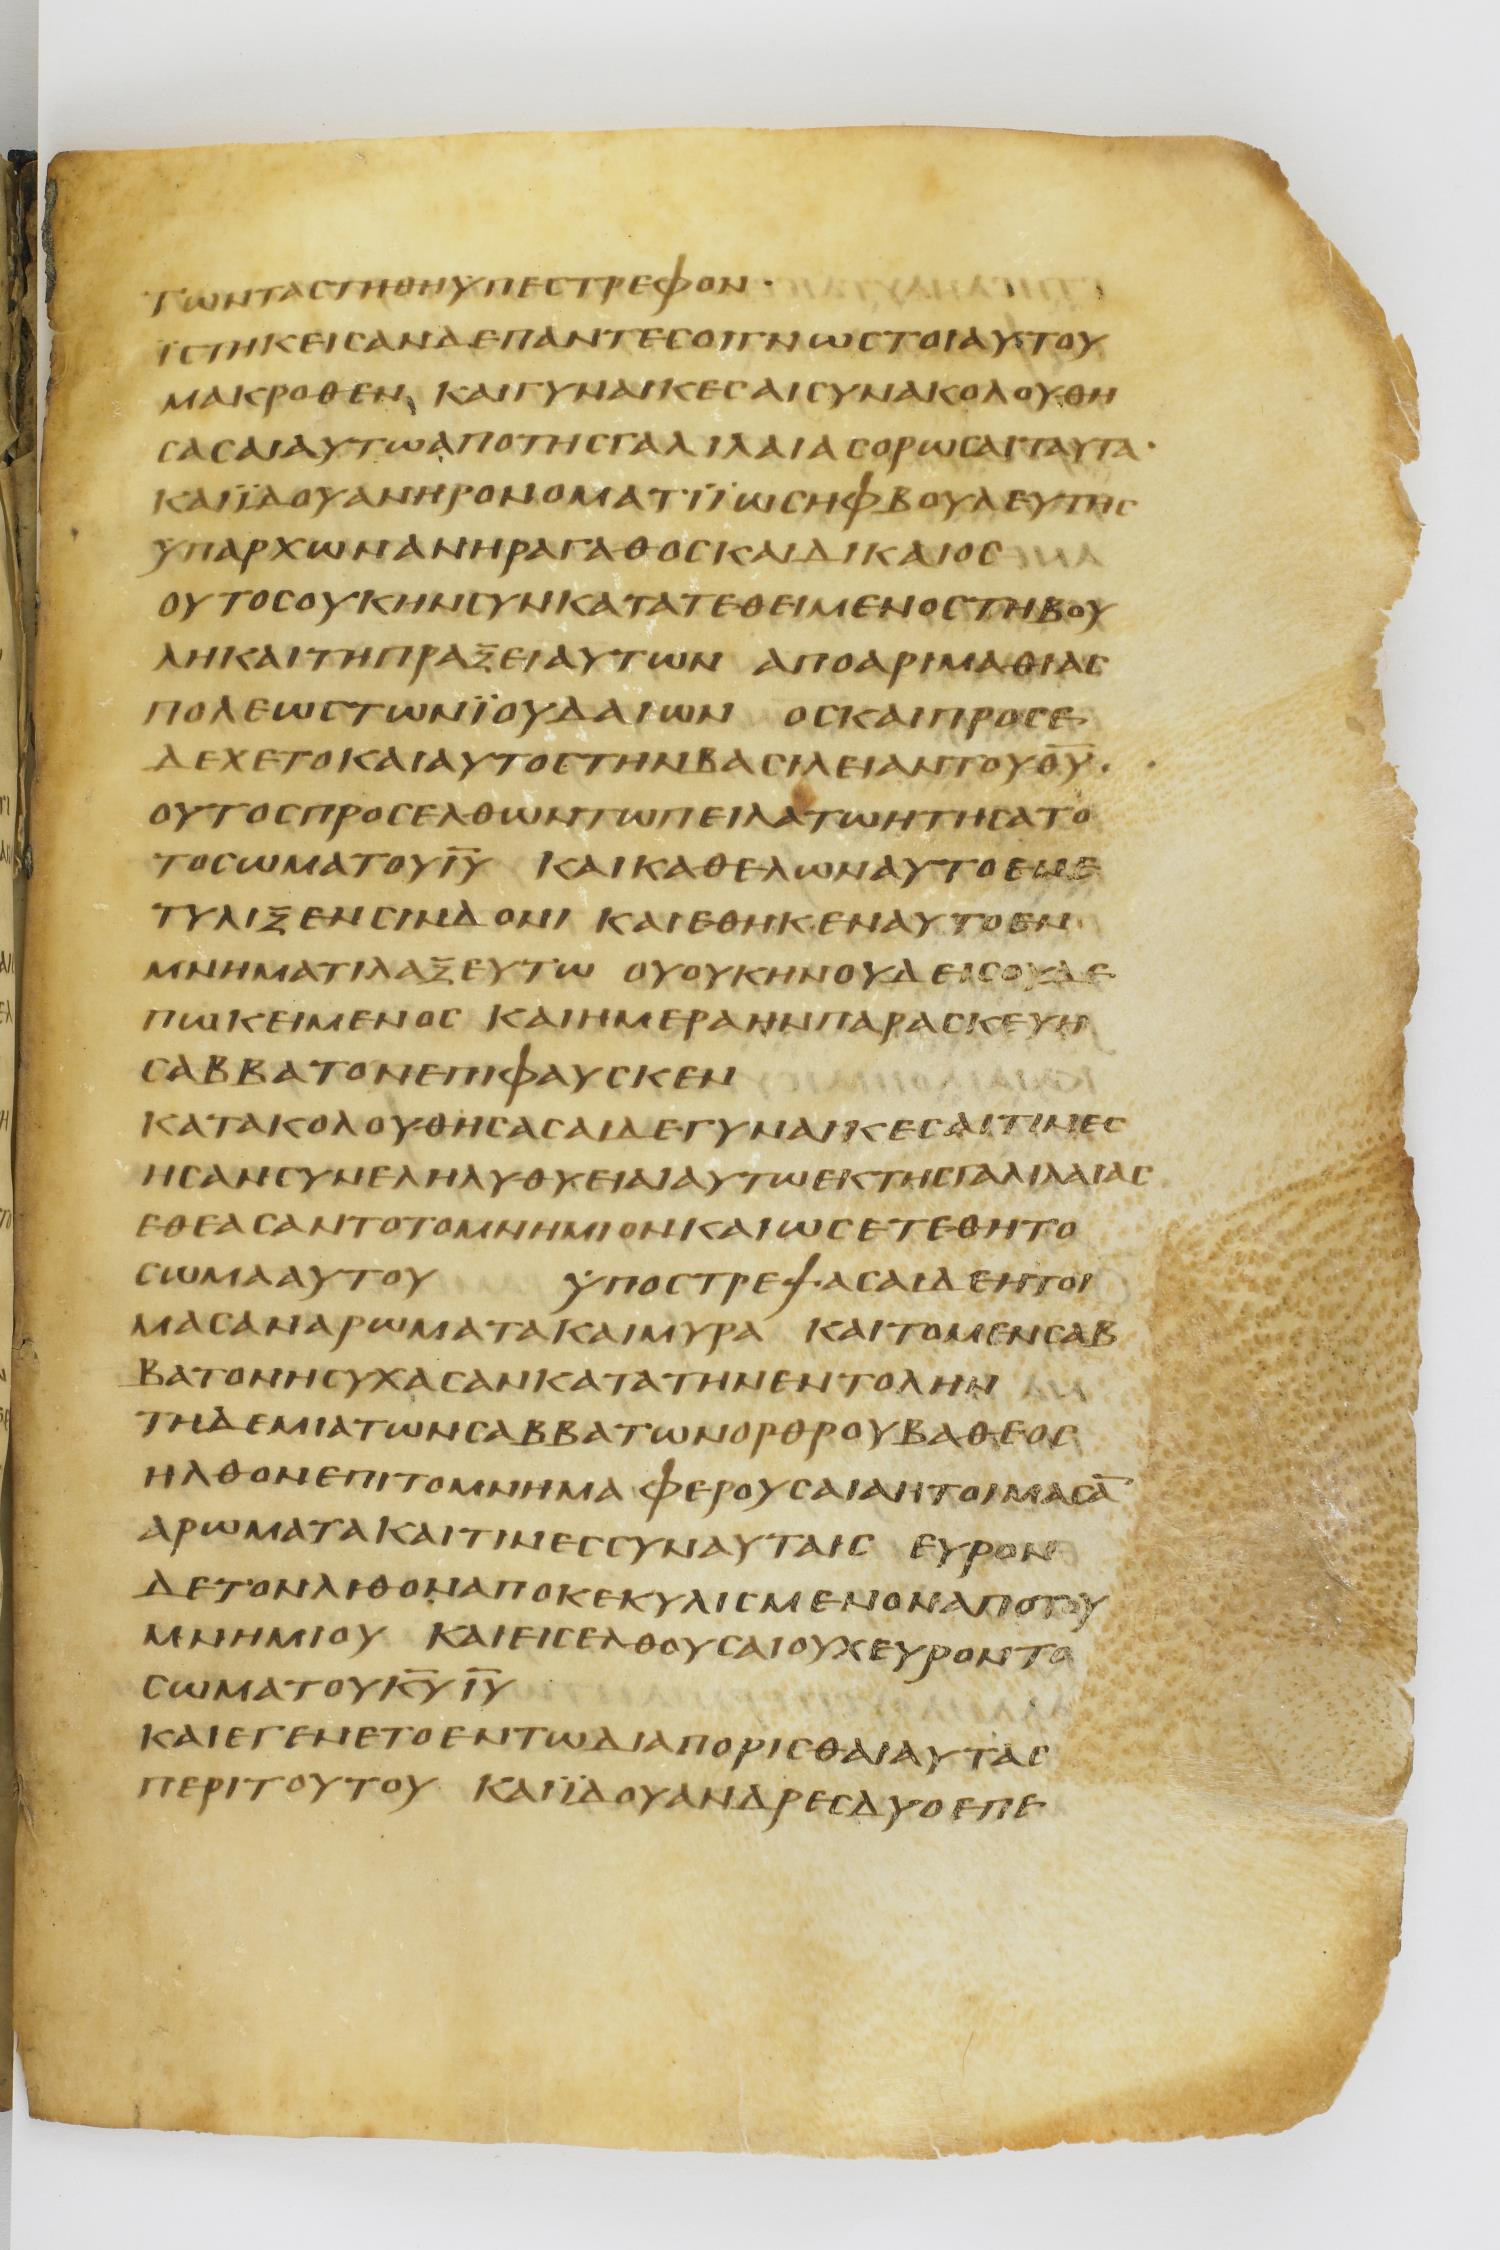 ΤΩΝΤΑΣΤΗΘΗΥΠΕΣΤΡΕΦΟΝ·
ΙΣΤΗΚΕΙΣΑΝΔΕΠΑΝΤΕΣΟΙΓΝΩΣΤΟΙΑΥΤΟΥ
ΜΑΚΡΟΘΕΝ ΚΑΙΓΥΝΑΙΚΕΣΑΙΣΥΝΑΚΟΛΟΥΘΗ
ΣΑΣΑΙΑΥΤΩΑΠΟΤΗΣΓΑΛΙΛΑΙΑΣΟΡΩΣΑΙΤΑΥΤΑ·
ΚΑΙΪΔΟΥΑΝΗΡΟΝΟΜΑΤΙΪΩΣΗΦΒΟΥΛΕΥΤΗΣ
ΥΠΑΡΧΩΝΑΝΗΡΑΓΑΘΟΣΚΑΙΔΙΚΑΙΟΣ
ΟΥΤΟΣΟΥΚΗΝΣΥΝΚΑΤΑΤΕΘΕΙΜΕΝΟΣΤΗΒΟΥ
ΛΗΚΑΙΤΗΠΡΑΞΕΙΑΥΤΩΝ ΑΠΟΑΡΙΜΑΘΙΑΣ
ΠΟΛΕΩΣΤΩΝΪΟΥΔΑΙΩΝ ΟΣΚΑΙΠΡΟΣΕ
ΔΕΧΕΤΟΚΑΙΑΥΤΟΣΤΗΝΒΑΣΙΛΕΙΑΝΤΟΥΘ̅Υ̅·
ΟΥΤΟΣΠΡΟΣΕΛΘΩΝΤΩΠΕΙΛΑΤΩΗΤΗΣΑΤΟ
ΤΟΣΩΜΑΤΟΥΙ̅Υ̅ ΚΑΙΚΑΘΕΛΩΝΑΥΤΟΕΝΕ
ΤΥΛΙΞΕΝΣΙΝΔΟΝΙ ΚΑΙΕΘΗΚΕΝΑΥΤΟΕΝ
ΜΝΗΜΑΤΙΛΑΞΕΥΤΩ ΟΥΟΥΚΗΝΟΥΔΕΙΣΟΥΔΕ
ΠΩΚΕΙΜΕΝΟΣ ΚΑΙΗΜΕΡΑΗΝΠΑΡΑΣΚΕΥΗ
ΣΑΒΒΑΤΟΝΕΠΙΦΑΥΣΚΕΝ
ΚΑΤΑΚΟΛΟΥΘΗΣΑΣΑΙΔΕΓΥΝΑΙΚΕΣΑΙΤΙΝΕΣ
ΗΣΑΝΣΥΝΕΛΗΛΥΘΥΕΙΑΙΑΥΤΩΕΚΤΗΣΓΑΛΙΛΑΙΑΣ
ΕΘΕΑΣΑΝΤΟΤΟΜΝΗΜΙΟΝΚΑΙΩΣΕΤΕΘΗΤΟ
ΣΩΜΑΑΥΤΟΥ ΫΠΟΣΤΡΕΨΑΣΑΙΔΕΗΤΟΙ
ΜΑΣΑΝΑΡΩΜΑΤΑΚΑΙΜΥΡΑ ΚΑΙΤΟΜΕΝΣΑΒ
ΒΑΤΟΝΗΣΥΧΑΣΑΝΚΑΤΑΤΗΝΕΝΤΟΛΗΝ
ΤΗΔΕΜΙΑΤΩΝΣΑΒΒΑΤΩΝΟΡΘΡΟΥΒΑΘΕΟΣ
ΗΛΘΟΝΕΠΙΤΟΜΝΗΜΑ ΦΕΡΟΥΣΑΙΑΗΤΟΙΜΑΣΑ̅
ΑΡΩΜΑΤΑΚΑΙΤΙΝΕΣΣΥΝΑΥΤΑΙΣ ΕΥΡΟΝ
ΔΕΤΟΝΛΙΘΟΝΑΠΟΚΕΚΥΛΙΣΜΕΝΟΝΑΠΟΤΟΥ
ΜΝΗΜΙΟΥ ΚΑΙΕΙΣΕΛΘΟΥΣΑΙΟΥΧΕΥΡΟΝΤΟ
ΣΩΜΑΤΟΥΚ̅Υ̅Ι̅Υ̅
ΚΑΙΕΓΕΝΕΤΟΕΝΤΩΔΙΑΠΟΡΙΣΘΑΙΑΥΤΑΣ
ΠΕΡΙΤΟΥΤΟΥ ΚΑΙΪΔΟΥΑΝΔΡΕΣΔΥΟΕΠΕ